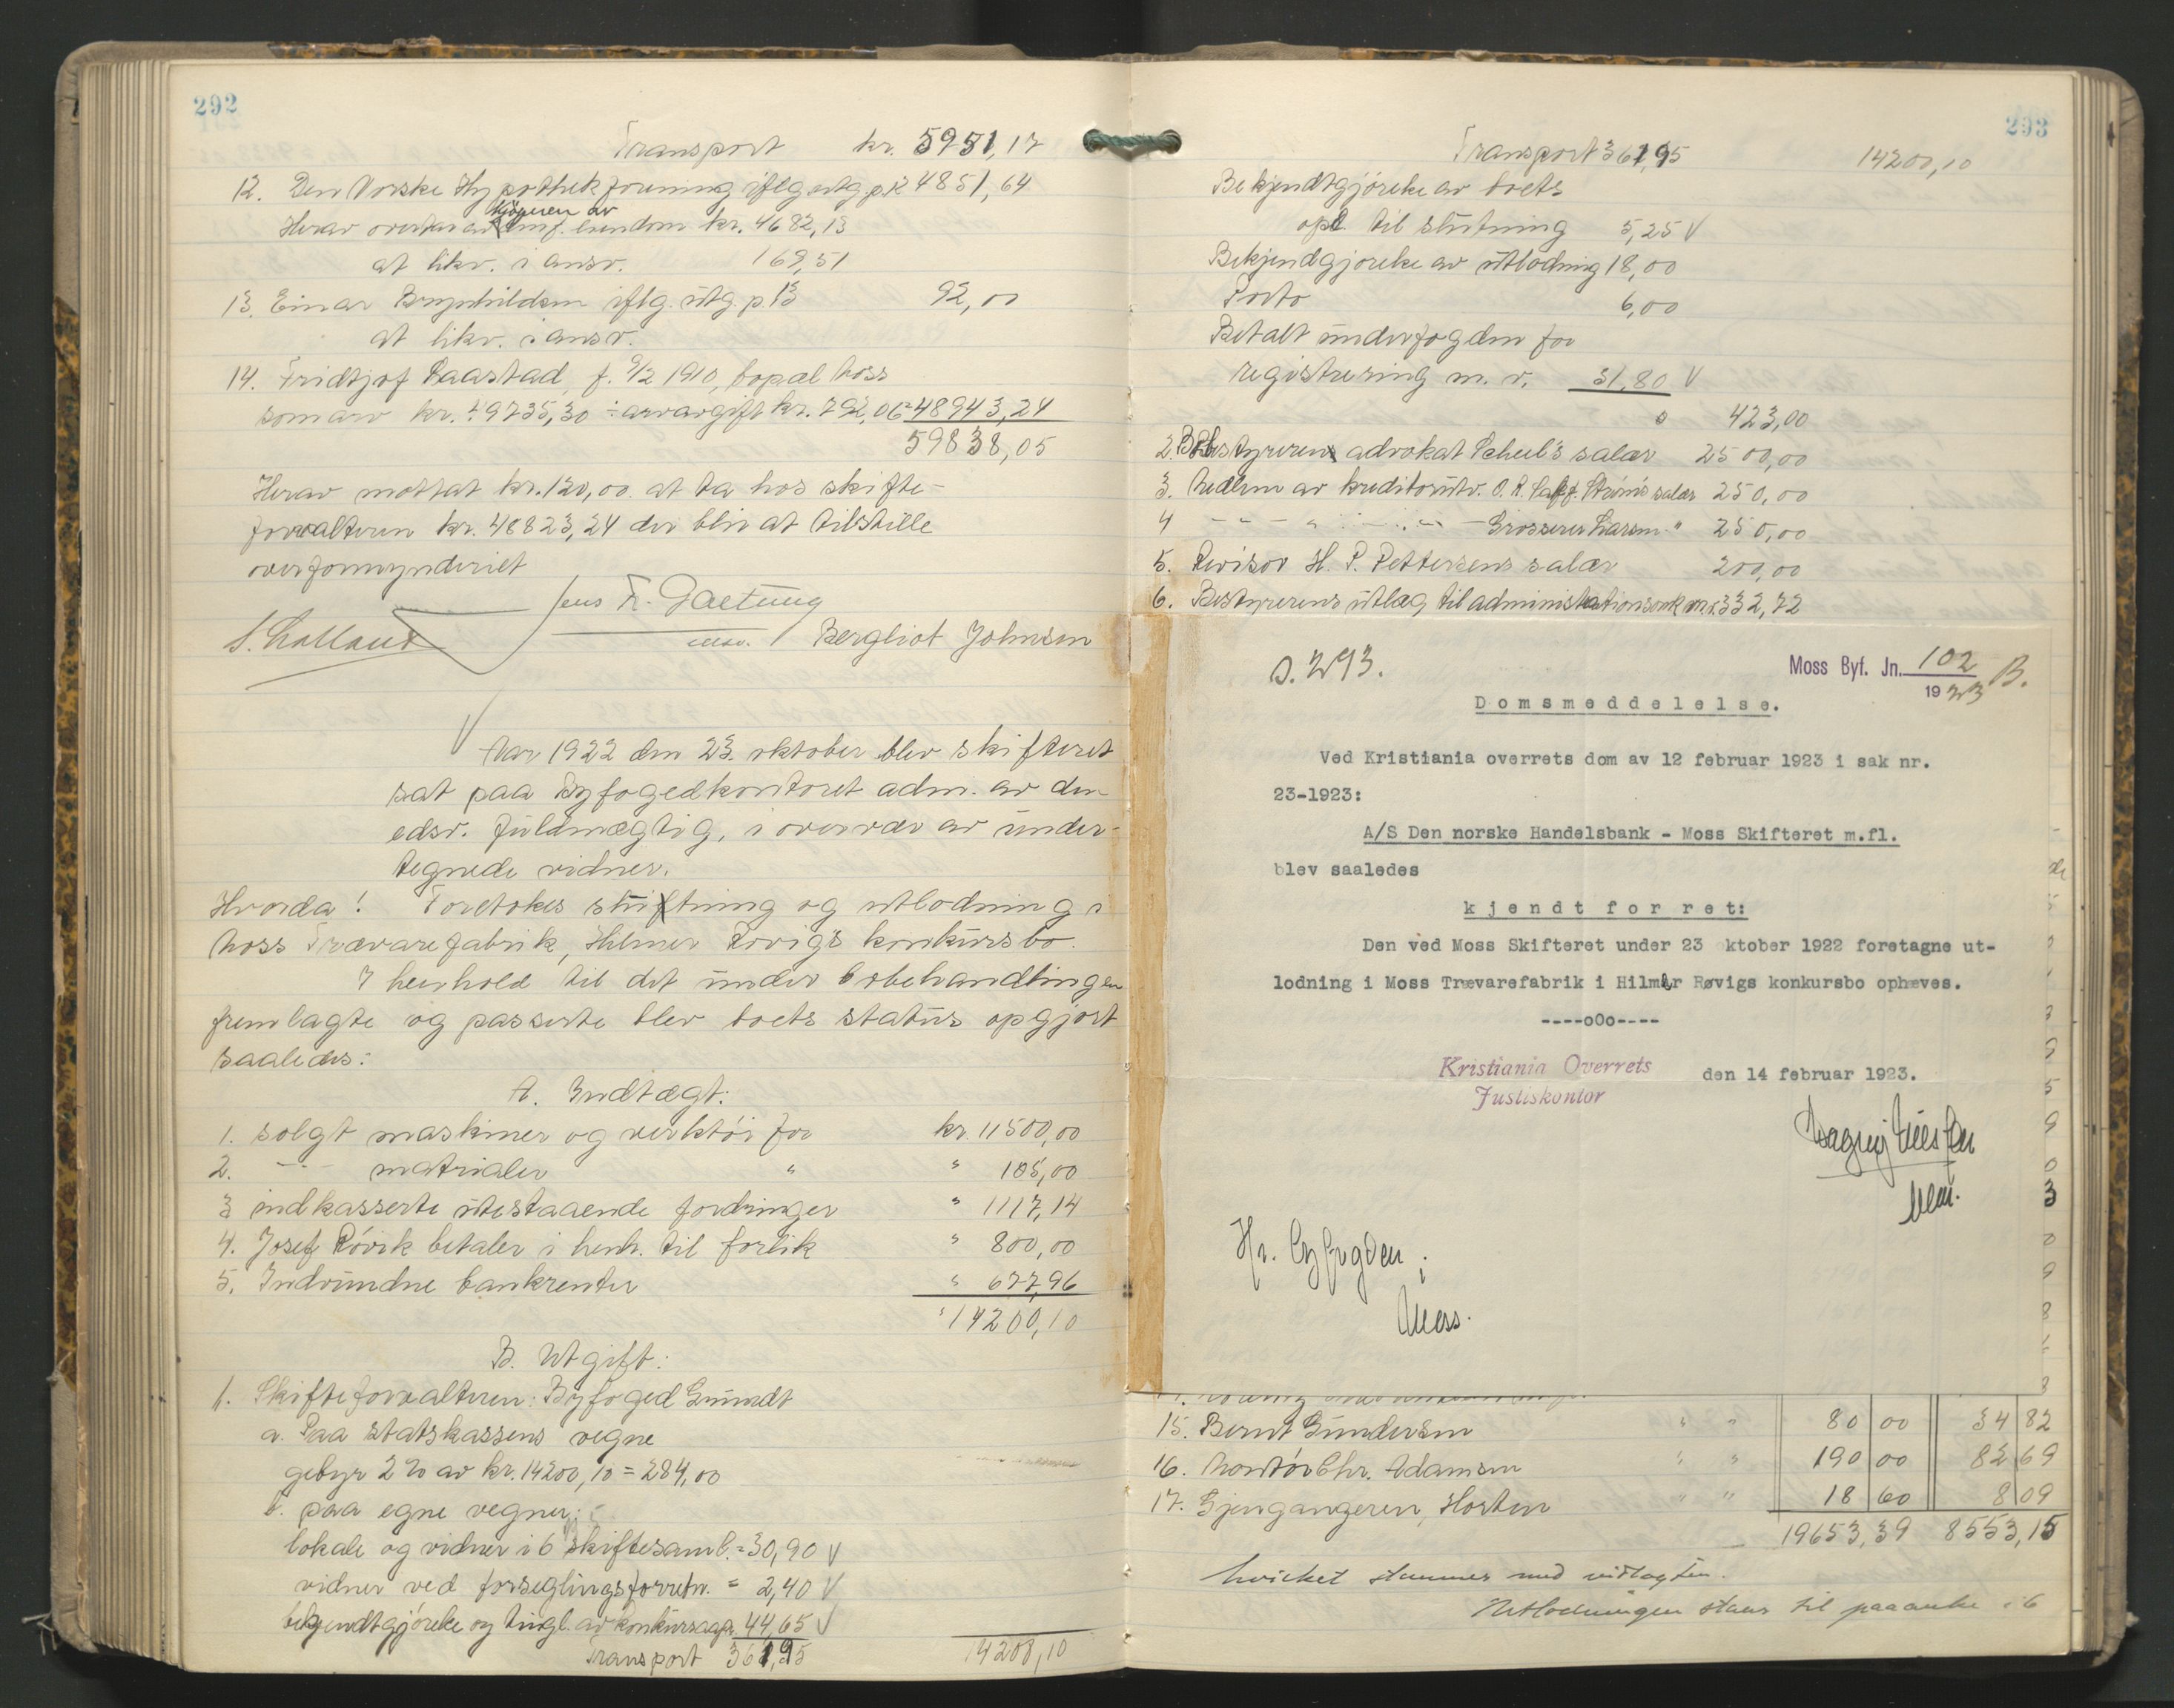 292
Transport kr. 5951,17
12. Den Norske Hypothekforening iflg utg. p. 12 4851,64
kjøperen av
Herav overtar av eiendom kr. 4682,13
at likv. i ansv. 169,51
13. Einar Brynhildsen iflg. utg. p 13 92,00
at likv. i ansv.
14. Fridtjof Raastad, f. 9/2 1910, bopæl Moss
som arv kr. 49735,30 ÷ arveavgift kr. 792,06 = 48943,24
59838,05
Herav mottat kr. 120,00 at ta hos skifte-
forvalteren kr. 48823,24 der blir at tilstille
overformynderiet
Jens Fr.
Bergliot Johnsen
Aar 1922 den 23. oktober blev skifteret
sat paa Byfogedkontoret adm. av den
edsv. fuldmægtig, i overvær av under-
tegnede vidner.
Hvorda: Foretokes slutning og utlodning i
Moss Trævarefabrik, Hilmer Røvigs konkursbo.
I henhold til det under bobehandlingen
fremlagte og passerte blev boets status opgjort
saaledes:
A. Indtægt:
1. solgt maskiner og verktøi for kr. 11500,00
2. -"- matrialer " " 105,00
3 indkasserte utestaaende fordringer " 1117,14
4. Josef Røvik betaler i henh. til forlik " 800,00
5. Indvundne bankrenter " 677,96
" 14200,10
B. Utgift:
1. Skifteforvalteren: Byfoged Grundt
a. Paa statskassens vegne
gebyr 2 % av kr. 14200,10 = 284,00
b. paa egne vegner:
lokale og vidner i 6 skiftesaml. = 30,90 V
vidner ved forseglingsforretn. = 2,40 V
bekjendtgjørelse og tingl. av konkursaapn. 44,65 V
Transport 361,95 14200,10
293
Transport 361,95 14200,10
Bekjendtgjørelse av boets
opl. til slutning 5,25 V
Bekjendgjørelse av utlodning 18,00
Porto 6,00
Betalt underfogden for
registrering m. v. 31,80 V
423,00
2. Bobestyreren advokat Scheel's salær 2500,00
3. Medlem av kreditorutv. O. R. salær 250,00
4 - " - " - Grosserer Larsen " 250,00
5. Revisor H. P. Pettersens salær 200,00
6. Bestyrerens utlæg til administrationsomk. m.v. 332,72
s. 293.
Moss Byf. Jn. 102 B.
1923
Domsmeddelelse.
Ved Kristiania overrets dom av 12 februar 1923 i sak nr.
23-1923:
A/S Den norske Handelsbank - Moss Skifteret m.fl.
blev saaledes
kjendt for ret:
Den ved Moss Skifteret under 23 ktober 1922 foretagne ut-
lodning i Moss Trævarefabrik i Hilmar Røvigs konkursbo ophæves.
----oOo----
Kristiania Overrets
Justiskontor
den 14 februar 1923.
Hr. Byfogden i
Moss.
15. Bernt Gundersen " " 80 00 34 82
16. Chr. Adamsen " " 190 00 82 69
17. Gjengangeren, Horten " " 18 60 8 09
19653,39 8553,15
hvilket stemmer med
Utlodningen staar til paaanke i 6